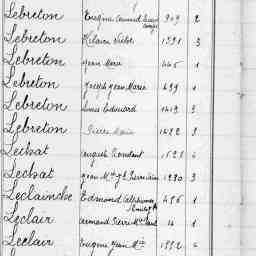 Lebreton Eugène 909 2
Lebreton Hilaire Victor 1391 3
Lebreton Jean Marie 445 1
Lebreton Joseph Jean Marie 459 1
Lebreton Louis Edouard 1419 3
Lebreton Pierre Marie 1422 3
Lechat Auguste Constant
Lechat Jean Mie 1290 3
Leclainche Edmond 496 1
Leclair Armand Pierre Marie 14 1
Leclair Eugène Jean Mie 1992